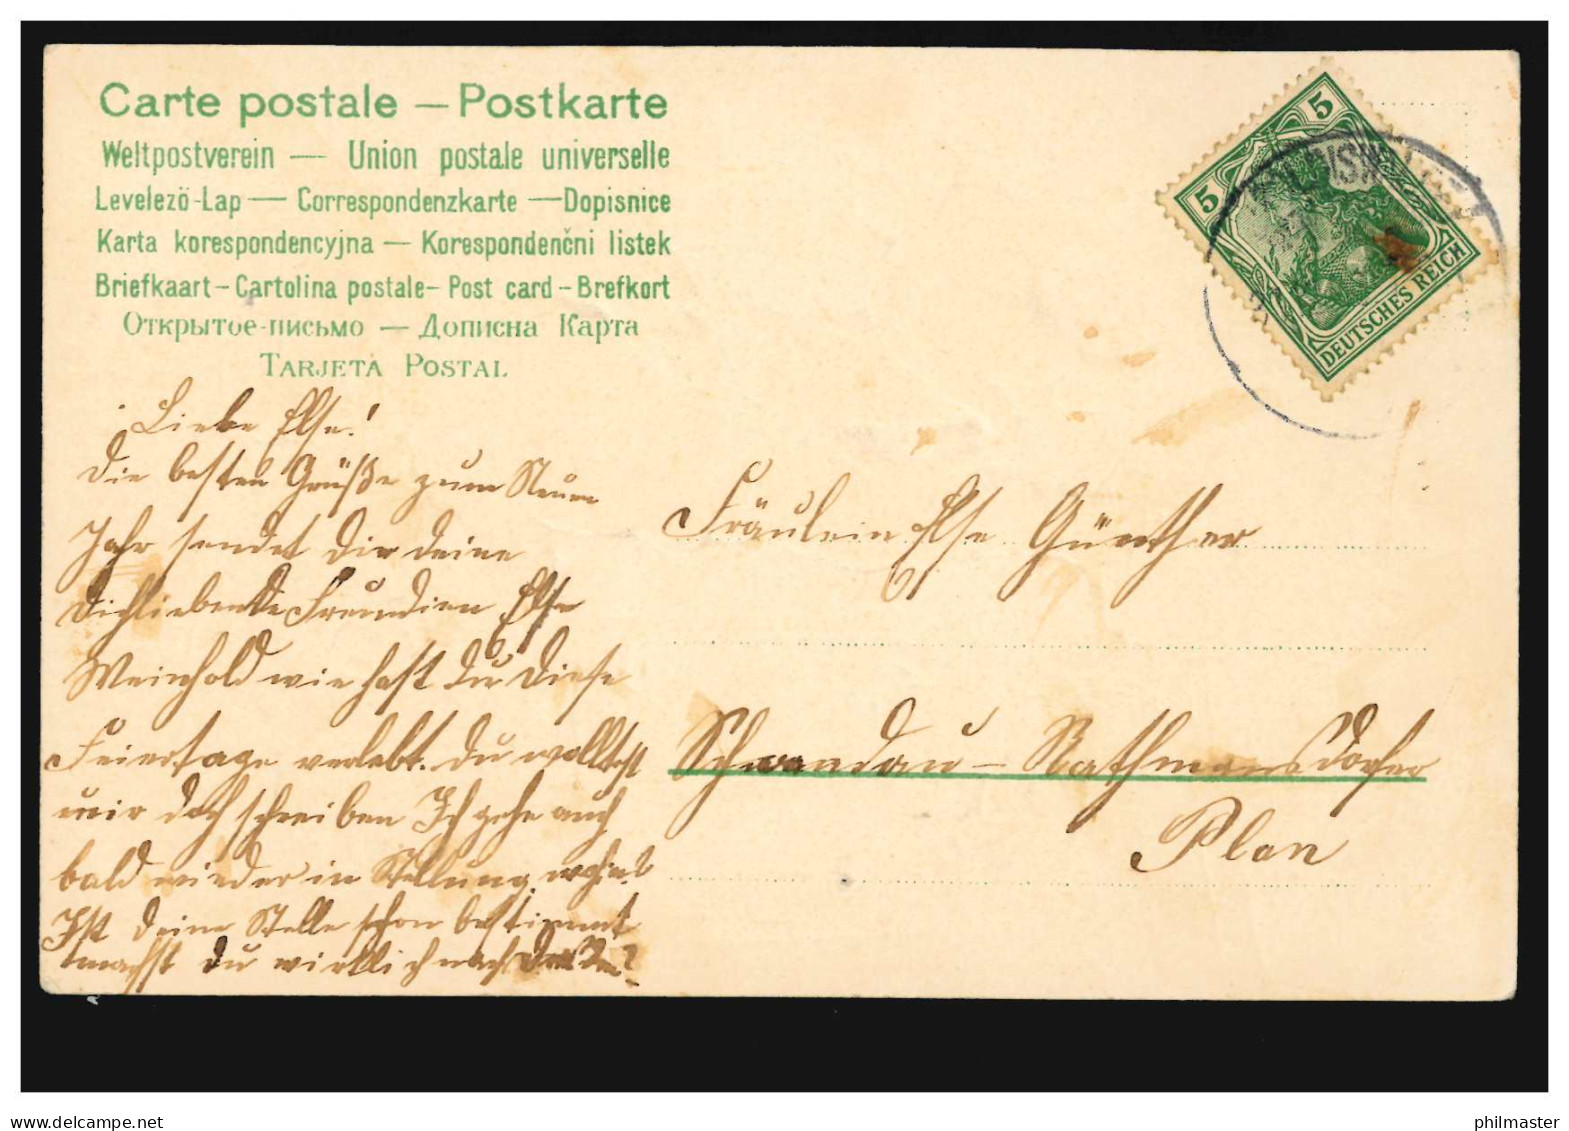 Carte postale — Postkarte
Weltpostverein — Union postale universelle
Levelezö-Lap — Correspondenzkarte — Dopisnice
Karta korespondencyjna — Korespondenčni listek
Briefkaart - Cartolina postale - Post card - Brefkort
Открытое-письмо — Дописна Карта
TARJETA POSTAL
5
5
DEUTSCHES REICH
Liebe Else!
Die besten Grüße zum Neuen
Jahr sendet Dir deine
Dichliebende Freundien Else
Weinhold wie hast du diese
Feiertage verlebt. du wolltest
mir doch schreiben Ich gehe auch
bald wieder in Stellung
Ist deine Stelle schon bestimmt
machst du wirklich nach
Fräulein Else Günther
Schwandau - Rathmansdorfer
Plan
www.delcampe.net
philmaster